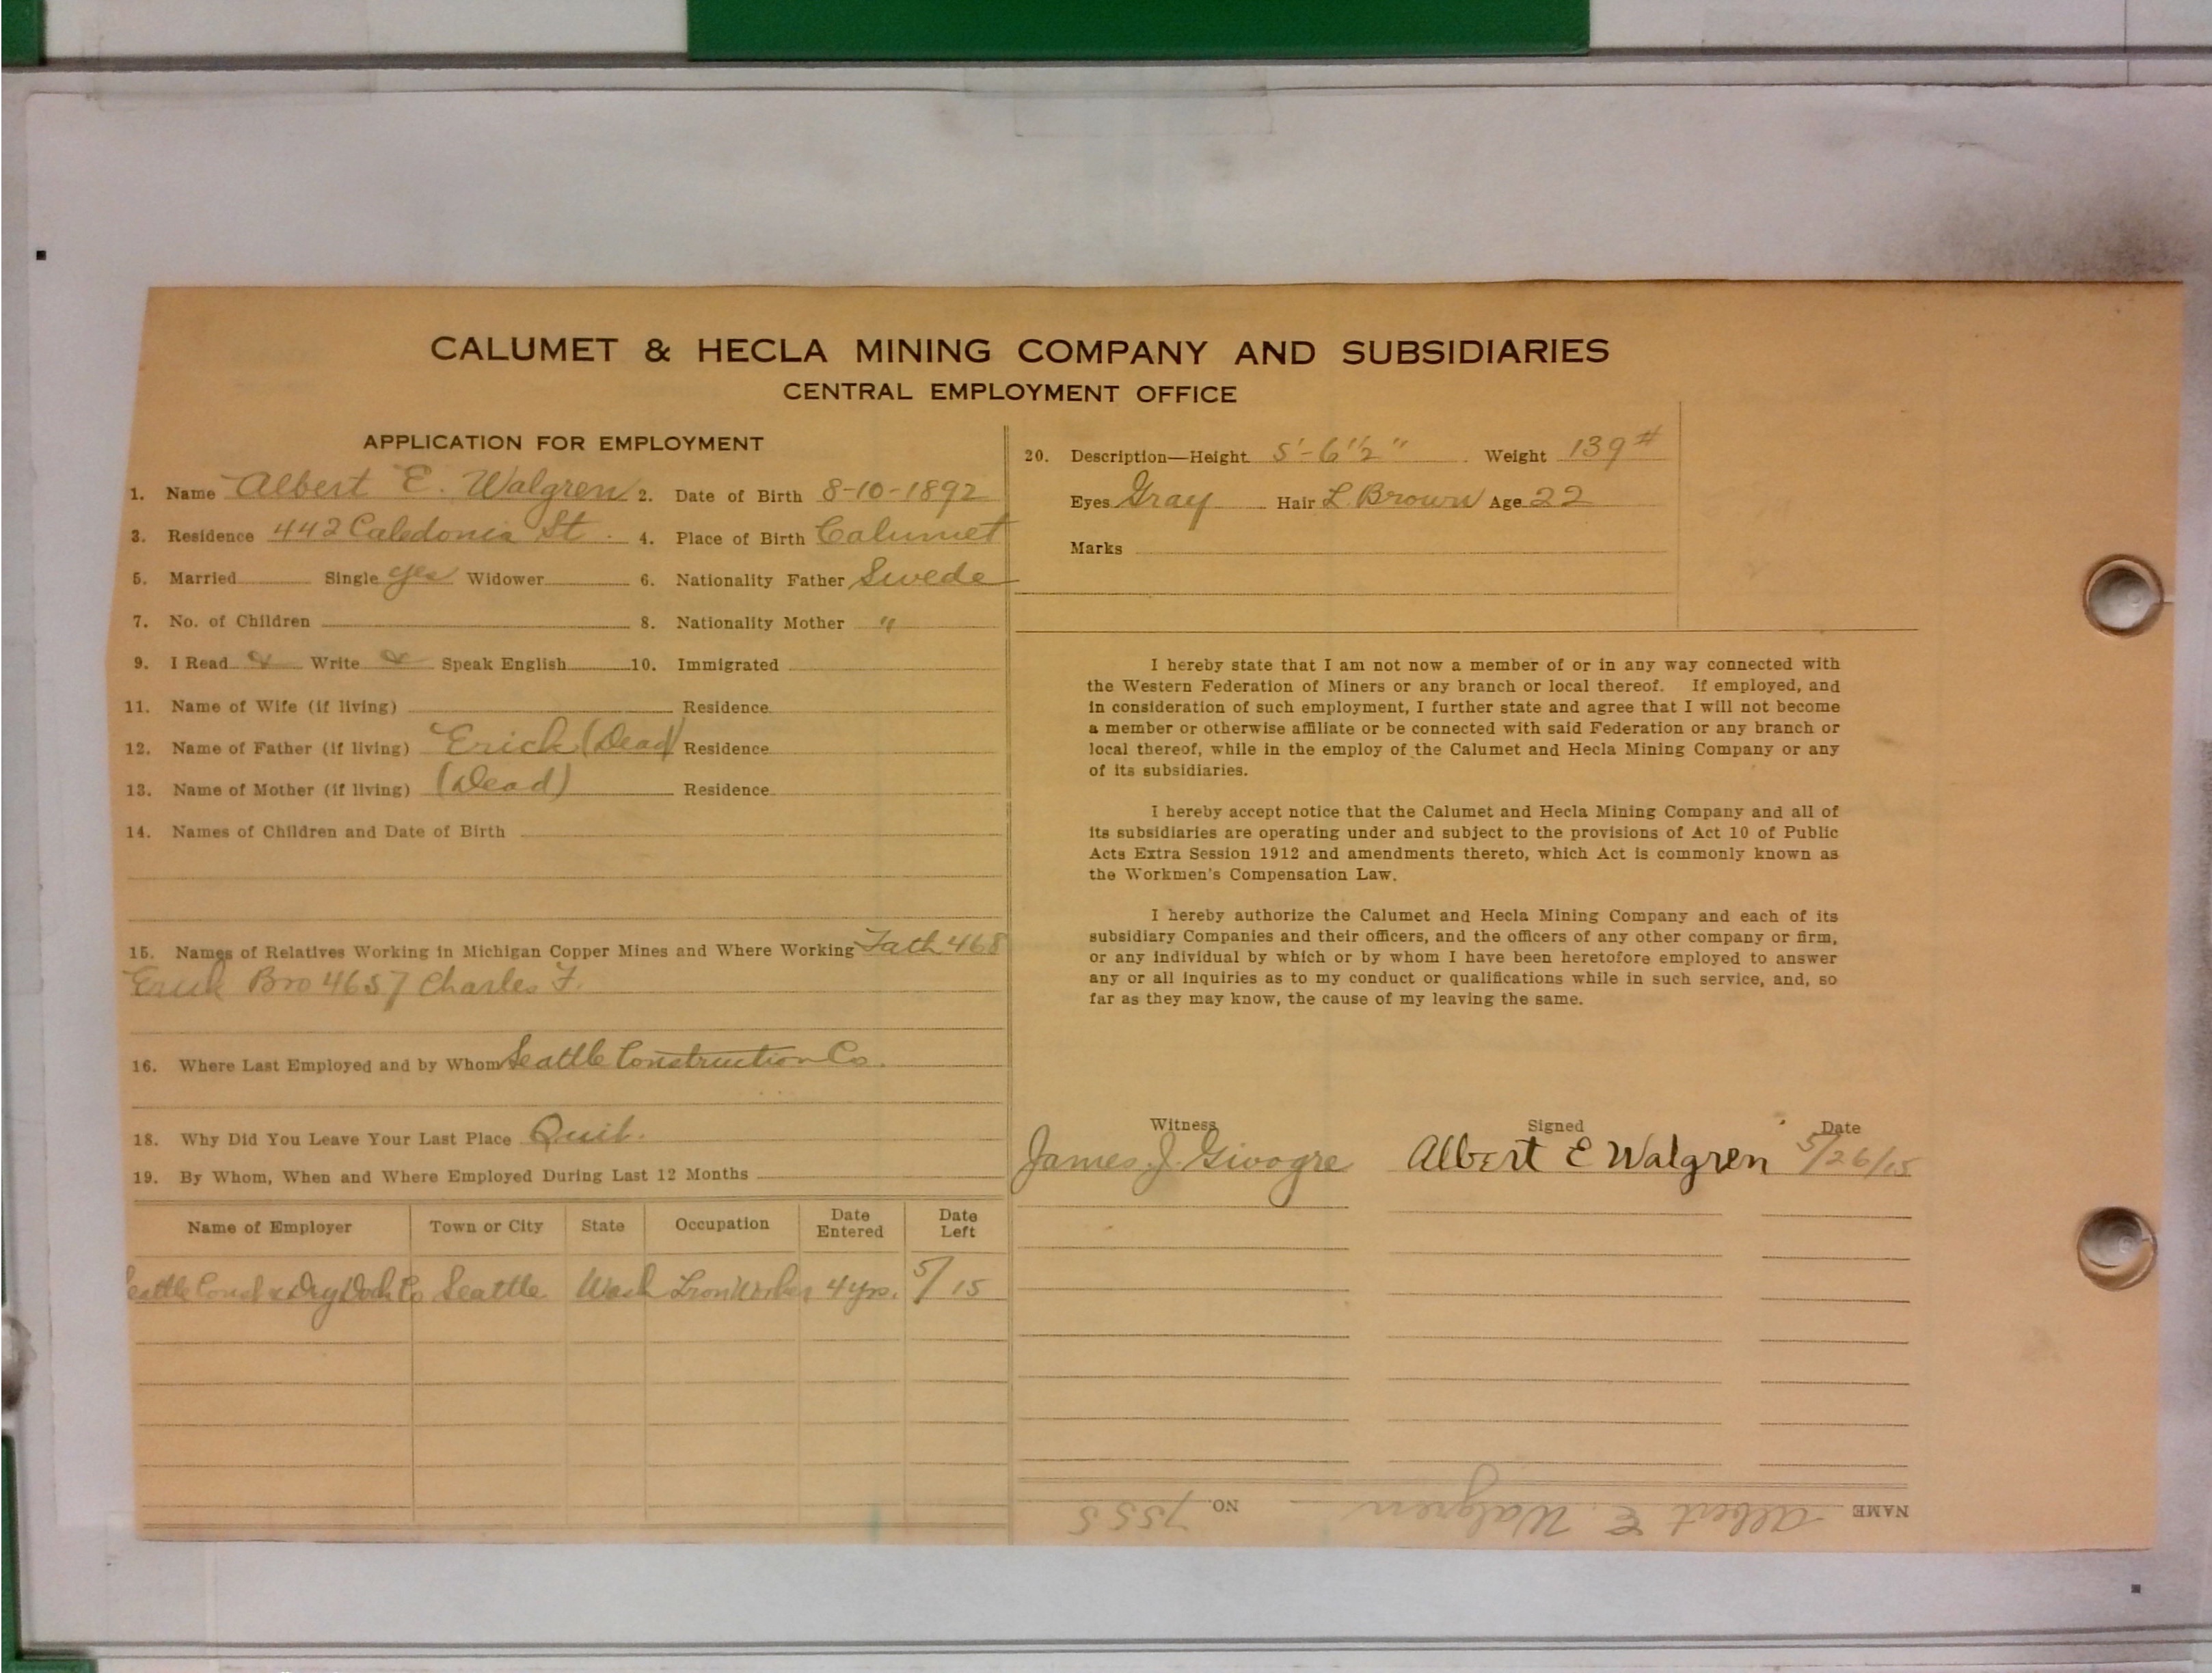 CALUMET & HECLA MINING COMPANY AND SUBSIDIARIES
CENTRAL EMPLOYMENT OFFICE
APPLICATION FOR EMPLOYMENT
1. Name Albert E. Walgren 2. Date of Birth 8-10-1892
3. Residence 442 Caledonia St. 4. Place of Birth Calumet
5. Married Single yes Widower 6. Nationality Father Swede
7. No. of Children 8. Nationality Mother "
9. I Read Write Speak English 10. Immigrated
11. Name of Wife (if living) Residence
12. Name of Father (if living) Erick (Dead) Residence
13. Name of Mother (if living) (Dead) Residence
14. Names of Children and Date of Birth
15. Names of Relatives Working in Michigan Copper Mines and Where Working Fath 468
Erick Bro 4657 Charles F.
16. Where Last Employed and by Whom Seattle Construction Co.
18. Why Did You Leave Your Last Place Quit.
19. By Whom, When and Where Employed During Last 12 Months
Name of Employer Town or City State Occupation Date Entered Date Left
eattle Const & Dry Dock Co Seattle Wash Iron Worker 4 yrs. 5/15
20. Description—Height 5'-6 1/2" Weight 139#
Eyes Gray Hair L. Brown Age 22
Marks
I hereby state that I am not now a member of or in any way connected with
the Western Federation of Miners or any branch or local thereof. If employed, and
in consideration of such employment, I further state and agree that I will not become
a member or otherwise affiliate or be connected with said Federation or any branch or
local thereof, while in the employ of the Calumet and Hecla Mining Company or any
of its subsidiaries.
I hereby accept notice that the Calumet and Hecla Mining Company and all of
its subsidiaries are operating under and subject to the provisions of Act 10 of Public
Acts Extra Session 1912 and amendments thereto, which Act is commonly known as
the Workmen's Compensation Law.
I hereby authorize the Calumet and Hecla Mining Company and each of its
subsidiary Companies and their officers, and the officers of any other company or firm,
or any individual by which or by whom I have been heretofore employed to answer
any or all inquiries as to my conduct or qualifications while in such service, and, so
far as they may know, the cause of my leaving the same.
Witness Signed Date
James J. Albert E Walgren 5/26/15
NAME Albert E. Walgren NO. 7555